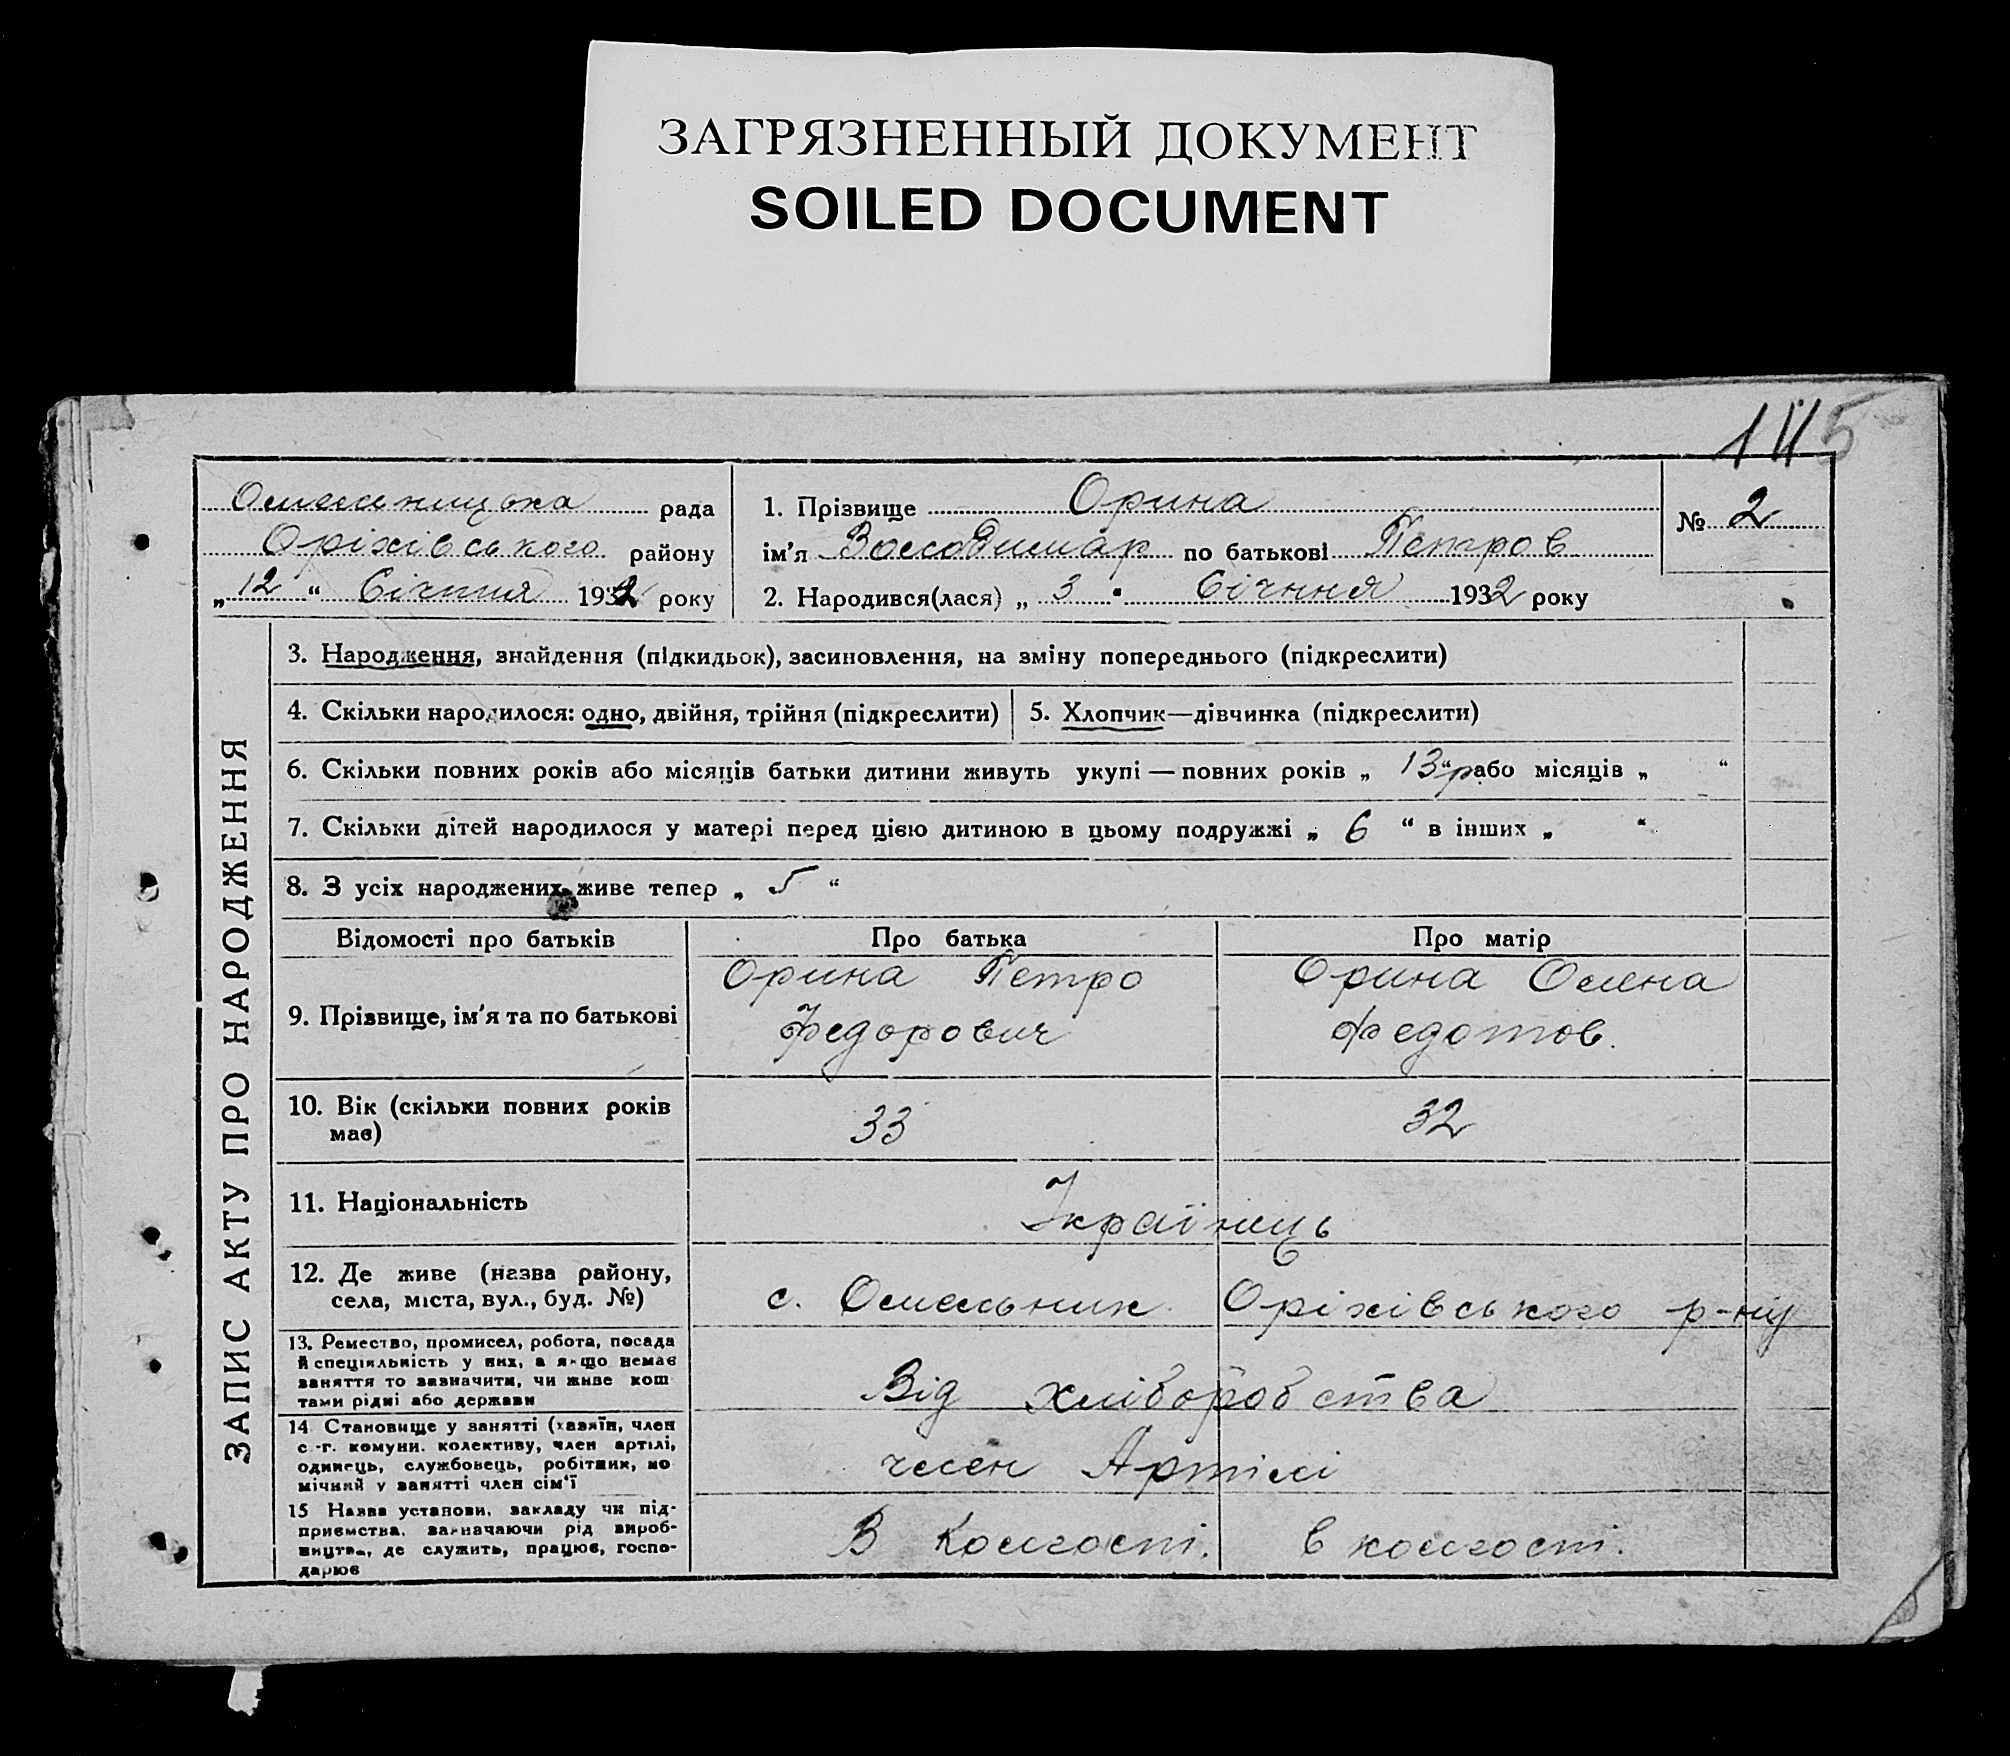 ЗАГРЯЗНЕННЫЙ ДОКУМЕНТ
SOILED DOCUMENT
145
Омельницька рада
Оріхівського району
„ 12 “ Січтня 1932 року
1. Прізвище Орина
ім’я Володимар по батькові Петров
2. Народився(лася) „ 3 “ Січння 1932 року
№ 2
ЗАПИС АКТУ ПРО НАРОДЖЕННЯ
3. Народження, знайдення (підкидьок), засиновлення, на зміну попереднього (підкреслити)
4. Скільки народилося: одно, двійня, трійня (підкреслити)
5. Хлопчик—дівчинка (підкреслити)
6. Скільки повних років або місяців батьки дитини живуть укупі — повних років „ 13 р. “ або місяців „ “
7. Скільки дітей народилося у матері перед цією дитиною в цьому подружжі „ 6 “ в інших „ “
8. З усіх народжених живе тепер „ 5 “
Відомості про батьків Про батька Про матір
9. Прізвище, ім’я та по батькові
Орина Петро
Федорович
Орина Олена
Федотов.
10. Вік (скільки повних років
має)
33 32
11. Національність
Українець
12. Де живе (назва району,
села, міста, вул., буд. №)
с. Омельник Оріхівського р-ну
13. Ремество, промисел, робота, посада
й спеціяльність у них, а якщо немає
заняття то зазначити, чи живе кош
тами рідні або держави
Від хліборобства
14 Становище у занятті (хазяїн, член
с.-г. комуни. колективу, член артілі,
одинець, службовець, робітник, по
мічний у занятті член сім’ї
член Артілі
15 Назва установи, закладу чи під-
приємства, зазначаючи рід вироб-
ництва, де служить, працює, госпо-
дарює
В Колгості. в колгості.